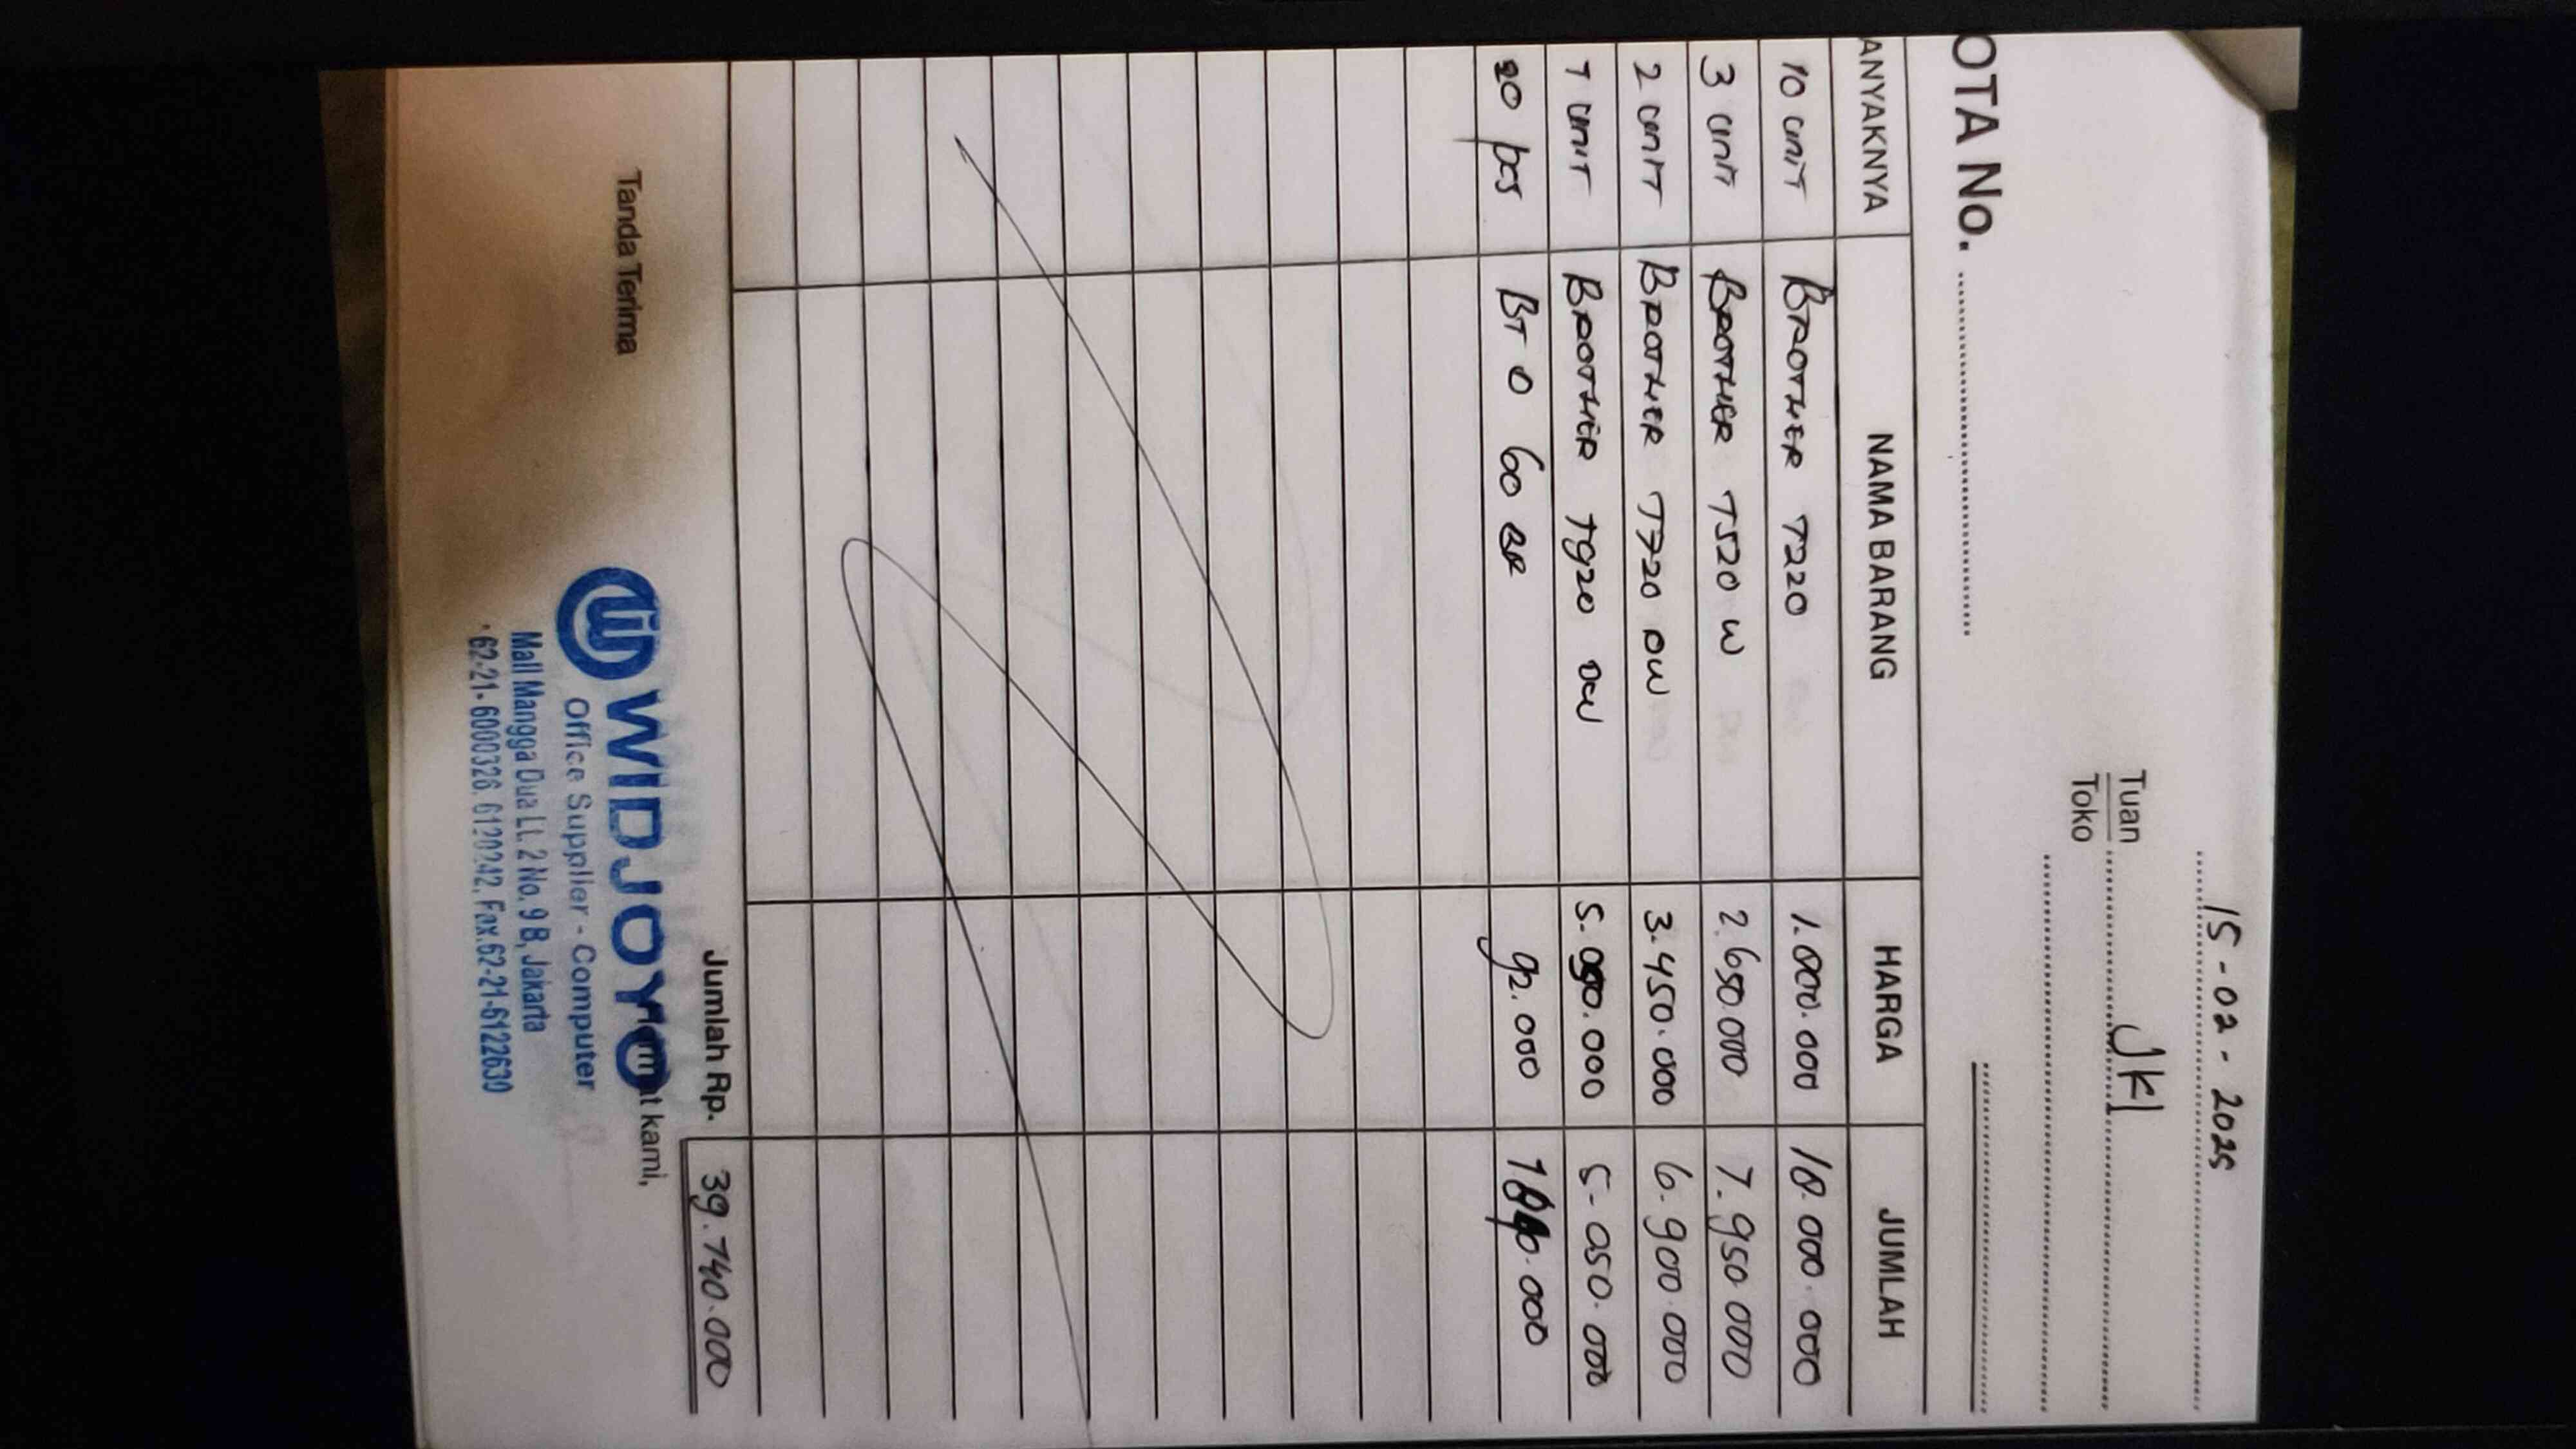 15-02-2025
Tuan JKI
Toko
OTA No.
ANYAKNYA NAMA BARANG HARGA JUMLAH
10 unit BROTHER T220 1.000.000 10.000.000
3 unit BROTHER T520 W 2.650.000 7.950.000
2 unit BROTHER T720 DW 3.450.000 6.900.000
1 unit BROTHER T920 DW 5.050.000 5.050.000
20 pcs BT D 60 BK 92.000
Jumlah Rp. 39.740.000
Tanda Terima
mat kami,
WIDJOYO
Office Supplier - Computer
Mall Mangga Dua Lt. 2 No. 9 B, Jakarta
62-21-6000326, 6120242, Fax.62-21-6122630